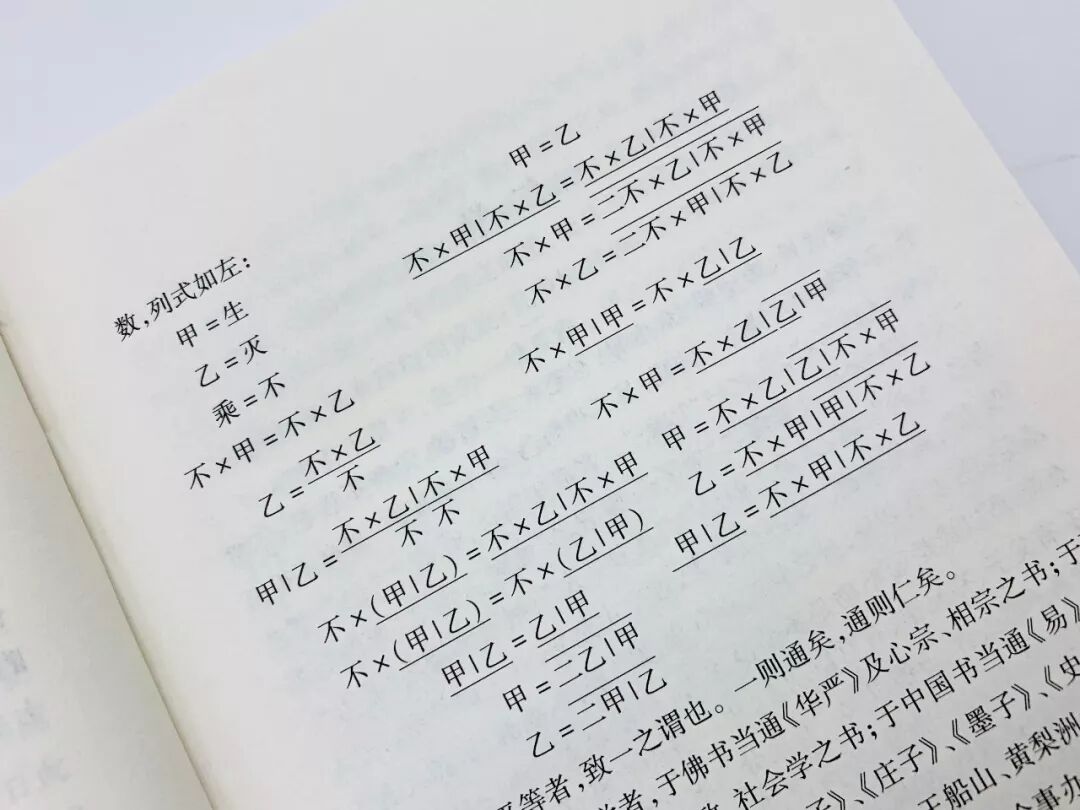 数,列式如左:
甲=生
乙=灭
乘=不
不×甲=不×乙
不×乙
乙=
不
不×乙|不×甲
甲|乙=
不 不
不×(甲|乙)=不×乙|不×甲
不×(甲|乙)=不×(乙|甲)
甲|乙=乙|甲
甲=二乙|甲
乙=二甲|乙
甲=乙
不×甲|不×乙=不×乙|不×甲
不×甲=二不×乙|不×甲
不×乙=二不×甲|不×乙
不×甲|甲=不×乙|乙
不×甲=不×乙|乙|甲
甲=不×乙|乙|不×甲
乙=不×甲|甲|不×乙
甲|乙=不×甲|不×乙
等者,致一之谓也。一则通矣,通则仁矣。
者,于佛书当通《华严》及心宗、相宗之书;于
社会学之书;于中国书当通《易》
《庄子》、《墨子》、《史
船山、黄梨洲